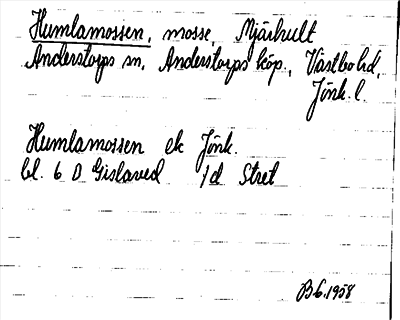 Humlamossen, mosse, Mjärhult
Anderstorps sn, Anderstorps köp., Västbo hd,
Jönk. l.
Humlamossen ek Jönk.
bl. 6 D Gislaved 1d Stret
B6.1958